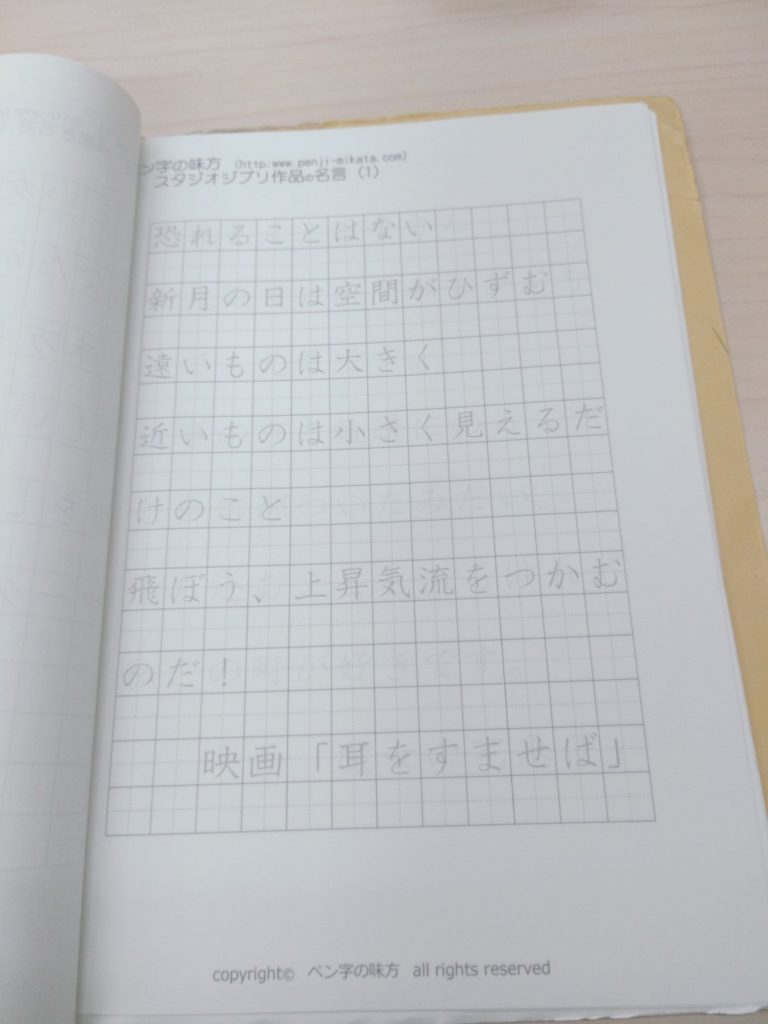 ペン字の味方 (http:www.penji-mikata.com)
スタジオジブリ作品の名言 (1)
恐れることはない
新月の日は空間がひずむ
遠いものは大きく
近いものは小さく見えるだ
けのこと
飛ぼう、上昇気流をつかむ
のだ！
映画「耳をすませば」
copyright© ペン字の味方 all rights reserved